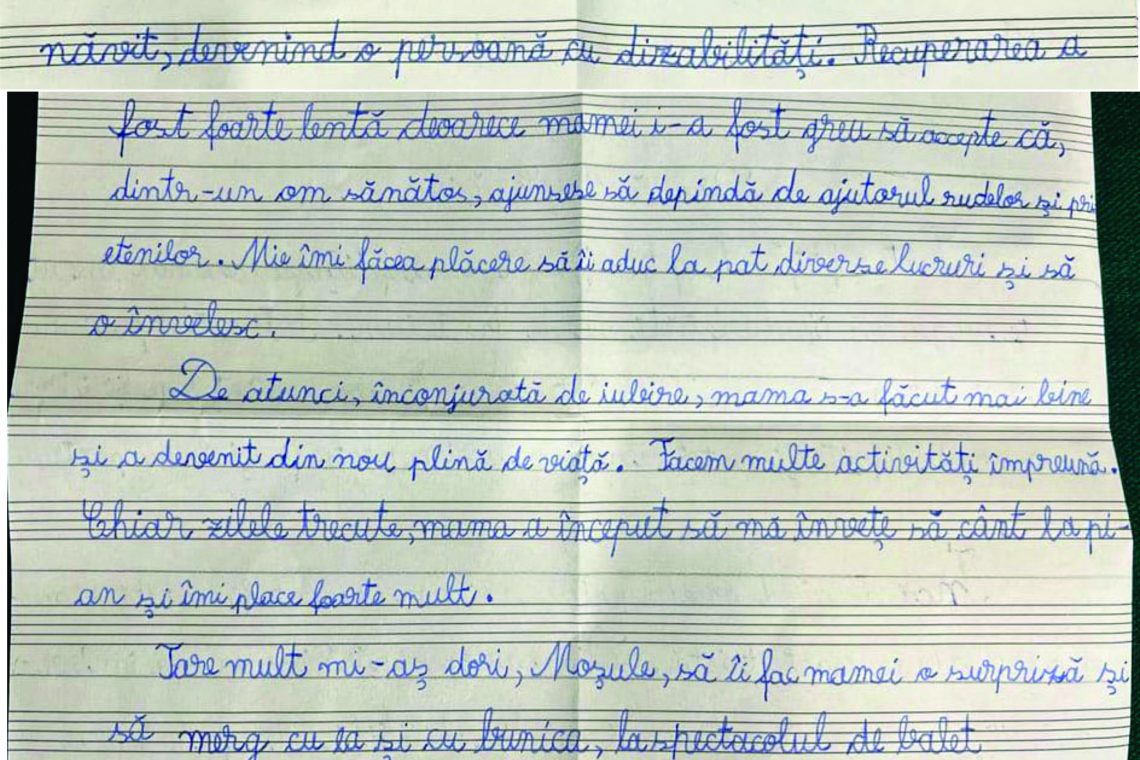 năvit, devenind o persoană cu dizabilități. Recuperarea a
fost foarte lentă deoarece mamei i-a fost greu să accepte că,
dintr-un om sănătos, ajunsese să depindă de ajutorul rudelor și pri
etenilor. Mie îmi făcea plăcere să îi aduc la pat diverse lucruri și să
o învelesc.
De atunci, înconjurată de iubire, mama s-a făcut mai bine
și a devenit din nou plină de viață. Facem multe activități împreună.
Chiar zilele trecute, mama a început să mă învețe să cânt la pi-
an și îmi place foarte mult.
Tare mult mi-aș dori, Moșule, să îi fac mamei o surpriză și
să merg cu ea și cu bunica, la spectacolul de balet